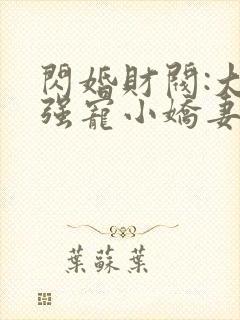 閃婚財閥:大
强寵小嬌妻
葉蘇葉